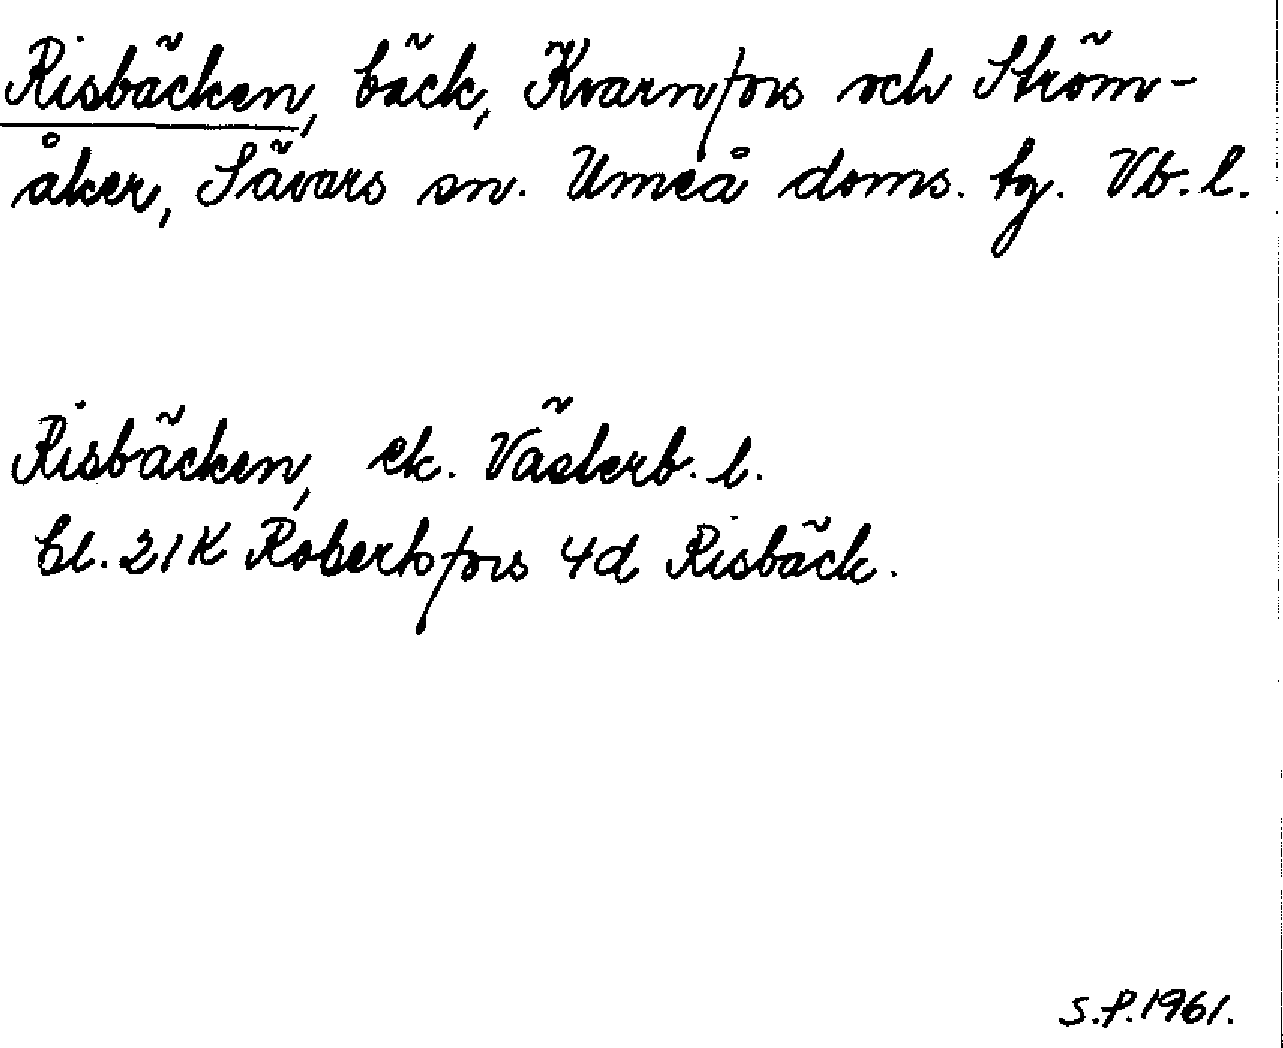 Risbäcken, bäck, Kvarnfors och Ström-
åker, Sävars sn. Umeå doms. tg. Vb. l.
Risbäcken, ek. Västerb. l.
bl. 21K Robertsfors 4d Risbäck.
S.P. 1961.